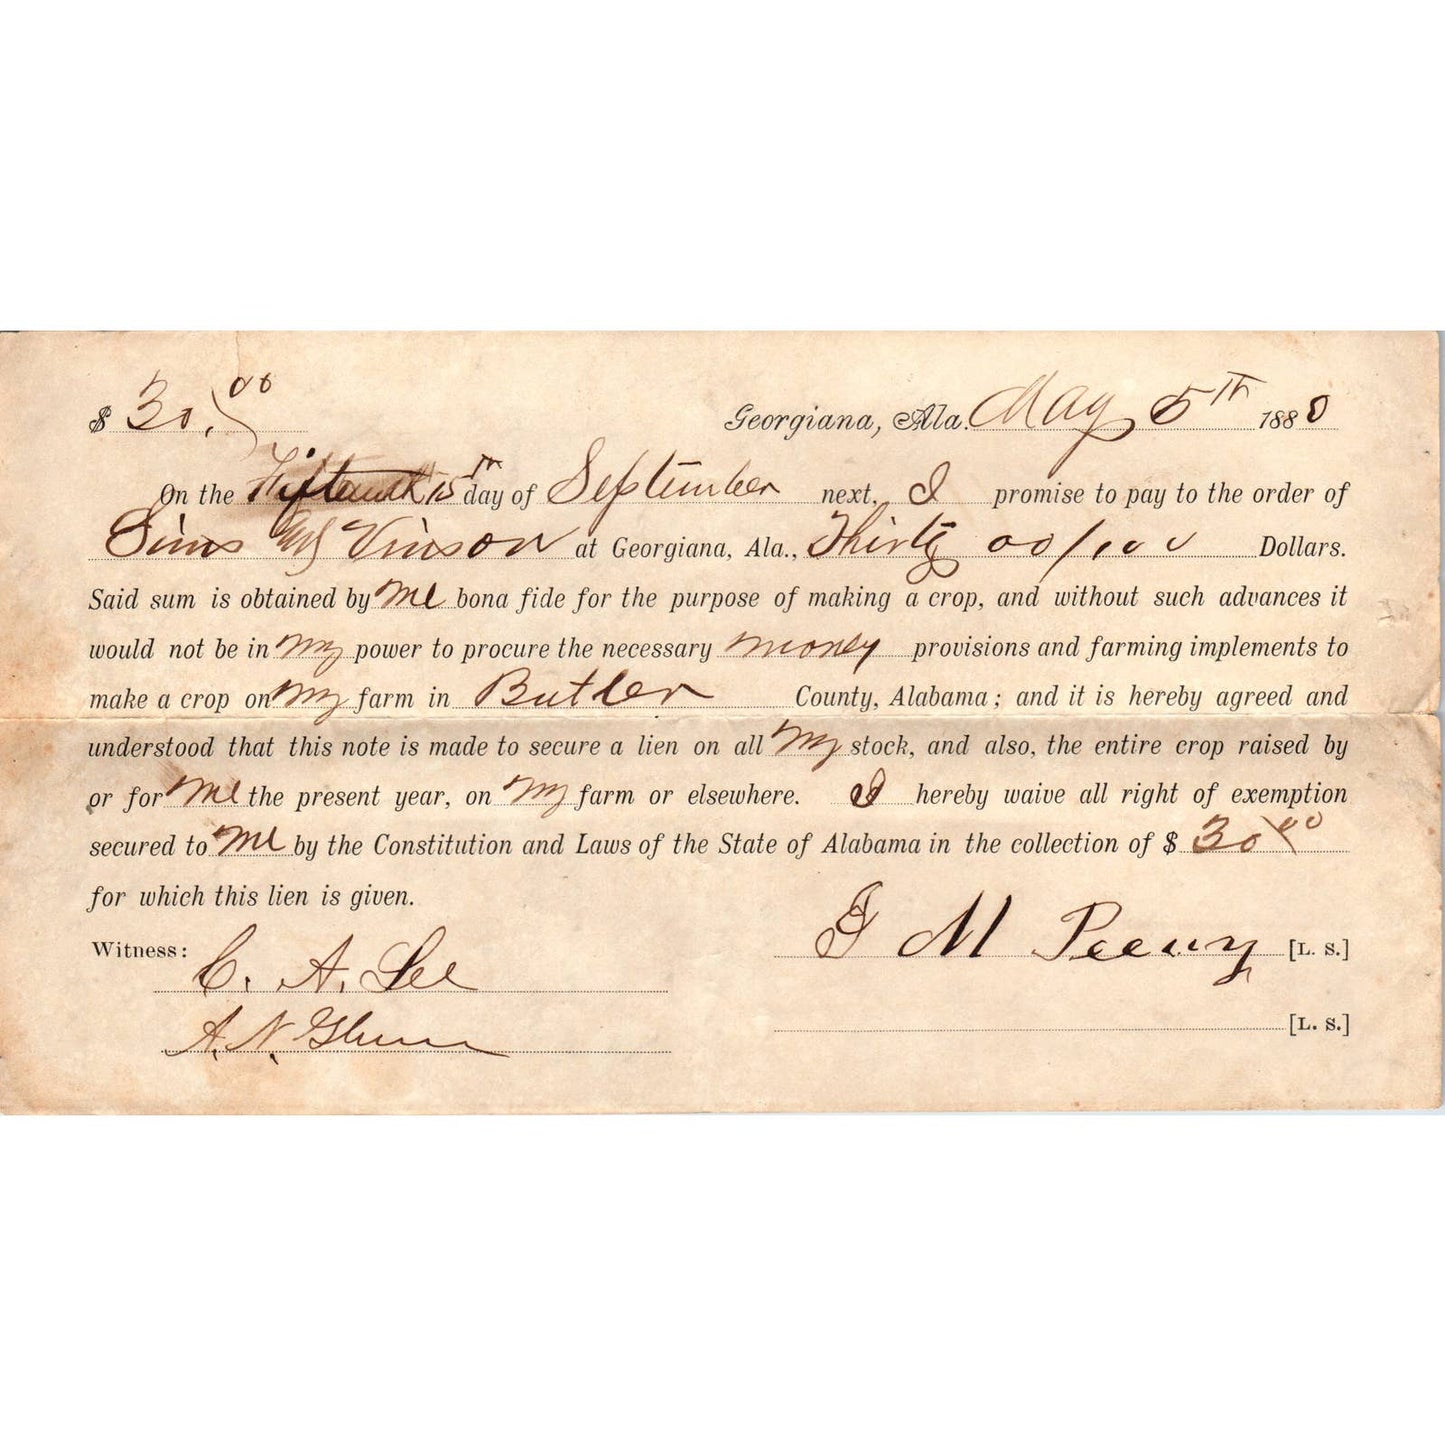 $ 30.00 Georgiana, Ala. May 5th 1880
On the Fifteenth 15th day of September next, I promise to pay to the order of
Sims & Vinson at Georgiana, Ala., Thirty 00/100 Dollars.
Said sum is obtained by me bona fide for the purpose of making a crop, and without such advances it
would not be in my power to procure the necessary money provisions and farming implements to
make a crop on my farm in Butler County, Alabama; and it is hereby agreed and
understood that this note is made to secure a lien on all my stock, and also, the entire crop raised by
or for me the present year, on my farm or elsewhere. I hereby waive all right of exemption
secured to me by the Constitution and Laws of the State of Alabama in the collection of $ 30 00
for which this lien is given.
Witness: M [L. S.]
C. A. Lee
A. N. [L. S.]